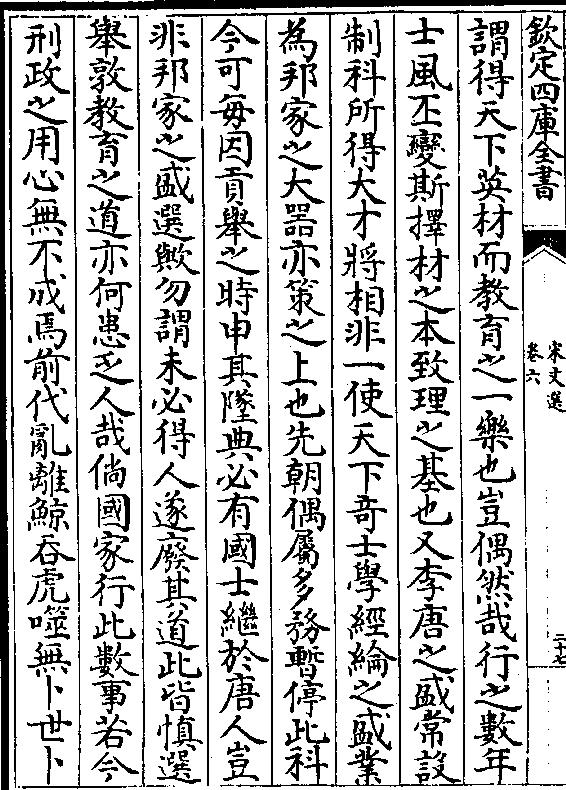 欽定四庫全書
宋文選
卷六
二十七
謂得天下英材而教育之一樂也豈偶然哉行之數年
士風丕變斯擇材之本致理之基也又李唐之盛常設
制科所得大才將相非一使天下奇士學經綸之盛業
為邦家之大器亦策之上也先朝偶屬多務暫停此科
今可毎因貢舉之時申其墜典必有國士繼於唐人豈
非邦家之盛選歟勿謂未必得人遂廢其道此皆慎選
舉敦教育之道亦何患乏人哉倘國家行此數事若今
刑政之用心無不成焉前代亂離鯨吞虎噬無卜世卜